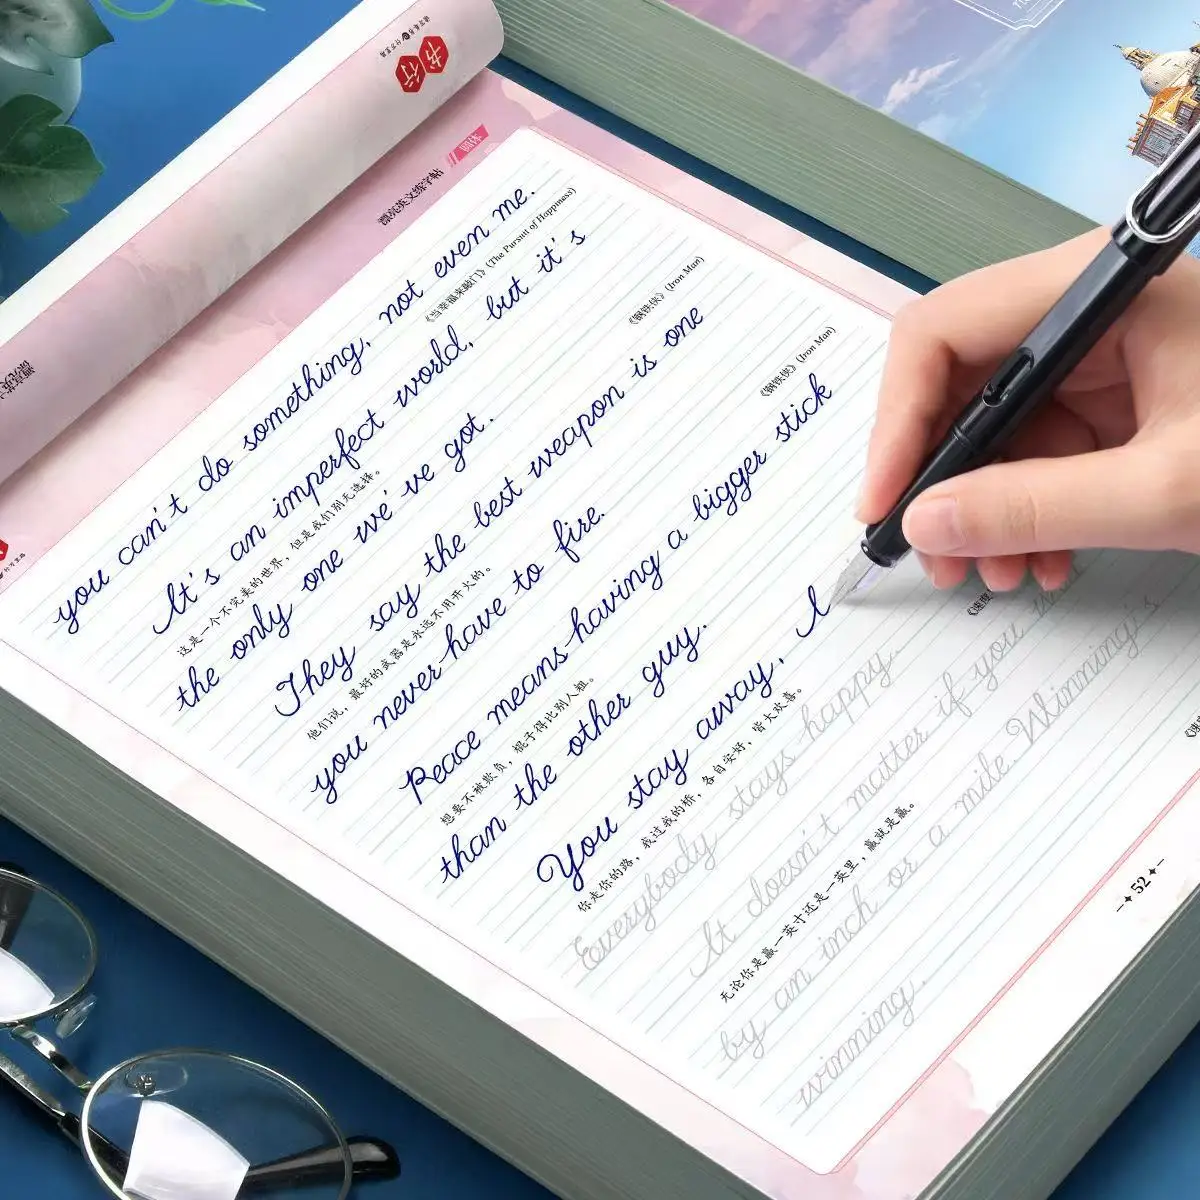 书行
漂亮英文练字帖
you can't do something, not even me.
《当幸福来敲门》(The Pursuit of Happiness)
It's an imperfect world, but it's
这是一个不完美的世界，但是我们别无选择。
the only one we've got.
《钢铁侠》(Iron Man)
They say the best weapon is one
他们说，最好的武器是永远不用开火的。
you never have to fire.
《钢铁侠》(Iron Man)
Peace means having a bigger stick
想要不被欺负，棍子得比别人粗。
than the other guy.
You stay away, I
你走你的路，我过我的桥，各自安好，皆大欢喜。
Everybody stays happy.
《速度
It doesn't matter if you win
无论你是赢一英寸还是一英里，赢就是赢。
by an inch or a mile. Winning's
winning.
《速
52